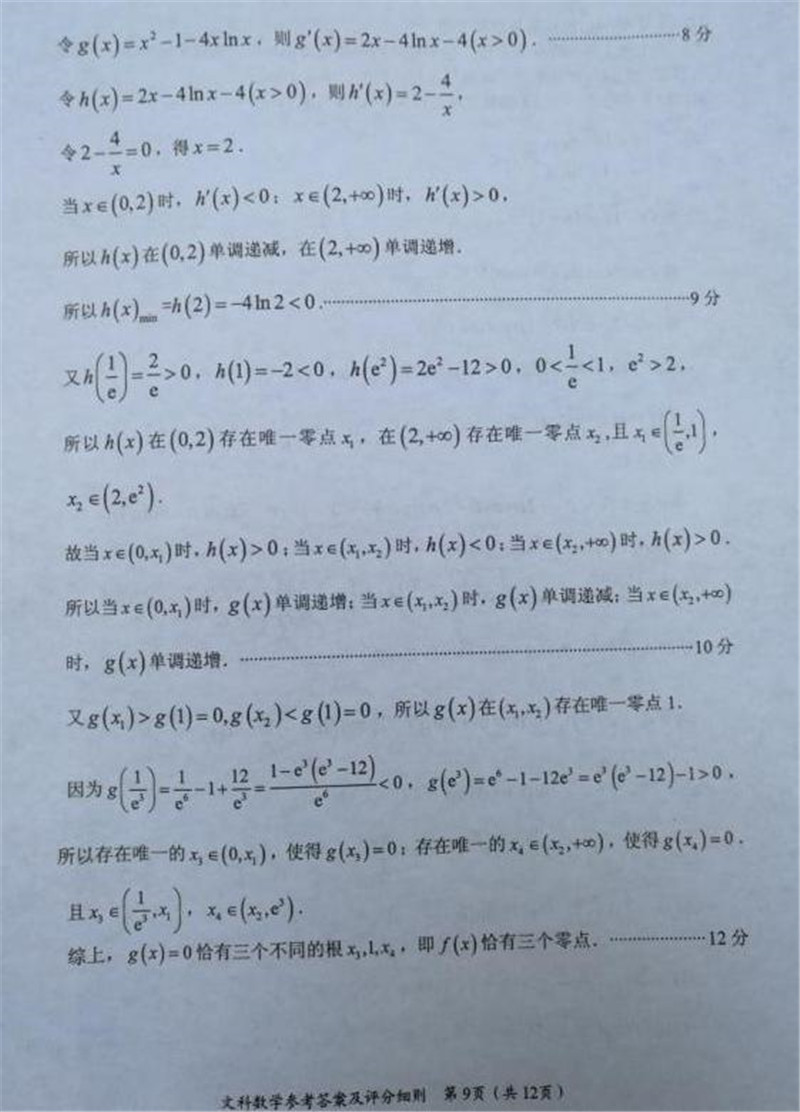 令g(x)=x²-1-4xlnx，则g′(x)=2x-4lnx-4(x>0).………………………8分
令h(x)=2x-4lnx-4(x>0)，则h′(x)=2-4/x，
令2-4/x=0，得x=2.
当x∈(0,2)时，h′(x)<0；x∈(2,+∞)时，h′(x)>0，
所以h(x)在(0,2)单调递减，在(2,+∞)单调递增.
所以h(x)min=h(2)=-4ln2<0.………………………9分
又h(1/e)=2/e>0，h(1)=-2<0，h(e²)=2e²-12>0，0<1/e<1，e²>2，
所以h(x)在(0,2)存在唯一零点x₁，在(2,+∞)存在唯一零点x₂,且x₁∈(1/e,1)，
x₂∈(2,e²).
故当x∈(0,x₁)时，h(x)>0；当x∈(x₁,x₂)时，h(x)<0；当x∈(x₂,+∞)时，h(x)>0.
所以当x∈(0,x₁)时，g(x)单调递增；当x∈(x₁,x₂)时，g(x)单调递减；当x∈(x₂,+∞)
时，g(x)单调递增.………………………10分
又g(x₁)>g(1)=0,g(x₂)<g(1)=0，所以g(x)在(x₁,x₂)存在唯一零点1.
因为g(1/e³)=1/e⁶-1+12/e³=(1-e³(e³-12))/e⁶<0，g(e³)=e⁶-1-12e³=e³(e³-12)-1>0，
所以存在唯一的x₃∈(0,x₁)，使得g(x₃)=0；存在唯一的x₄∈(x₂,+∞)，使得g(x₄)=0.
且x₃∈(1/e³,x₁)，x₄∈(x₂,e³).
综上，g(x)=0恰有三个不同的根x₃,1,x₄，即f(x)恰有三个零点.………………………12分
文科数学参考答案及评分细则 第9页（共12页）